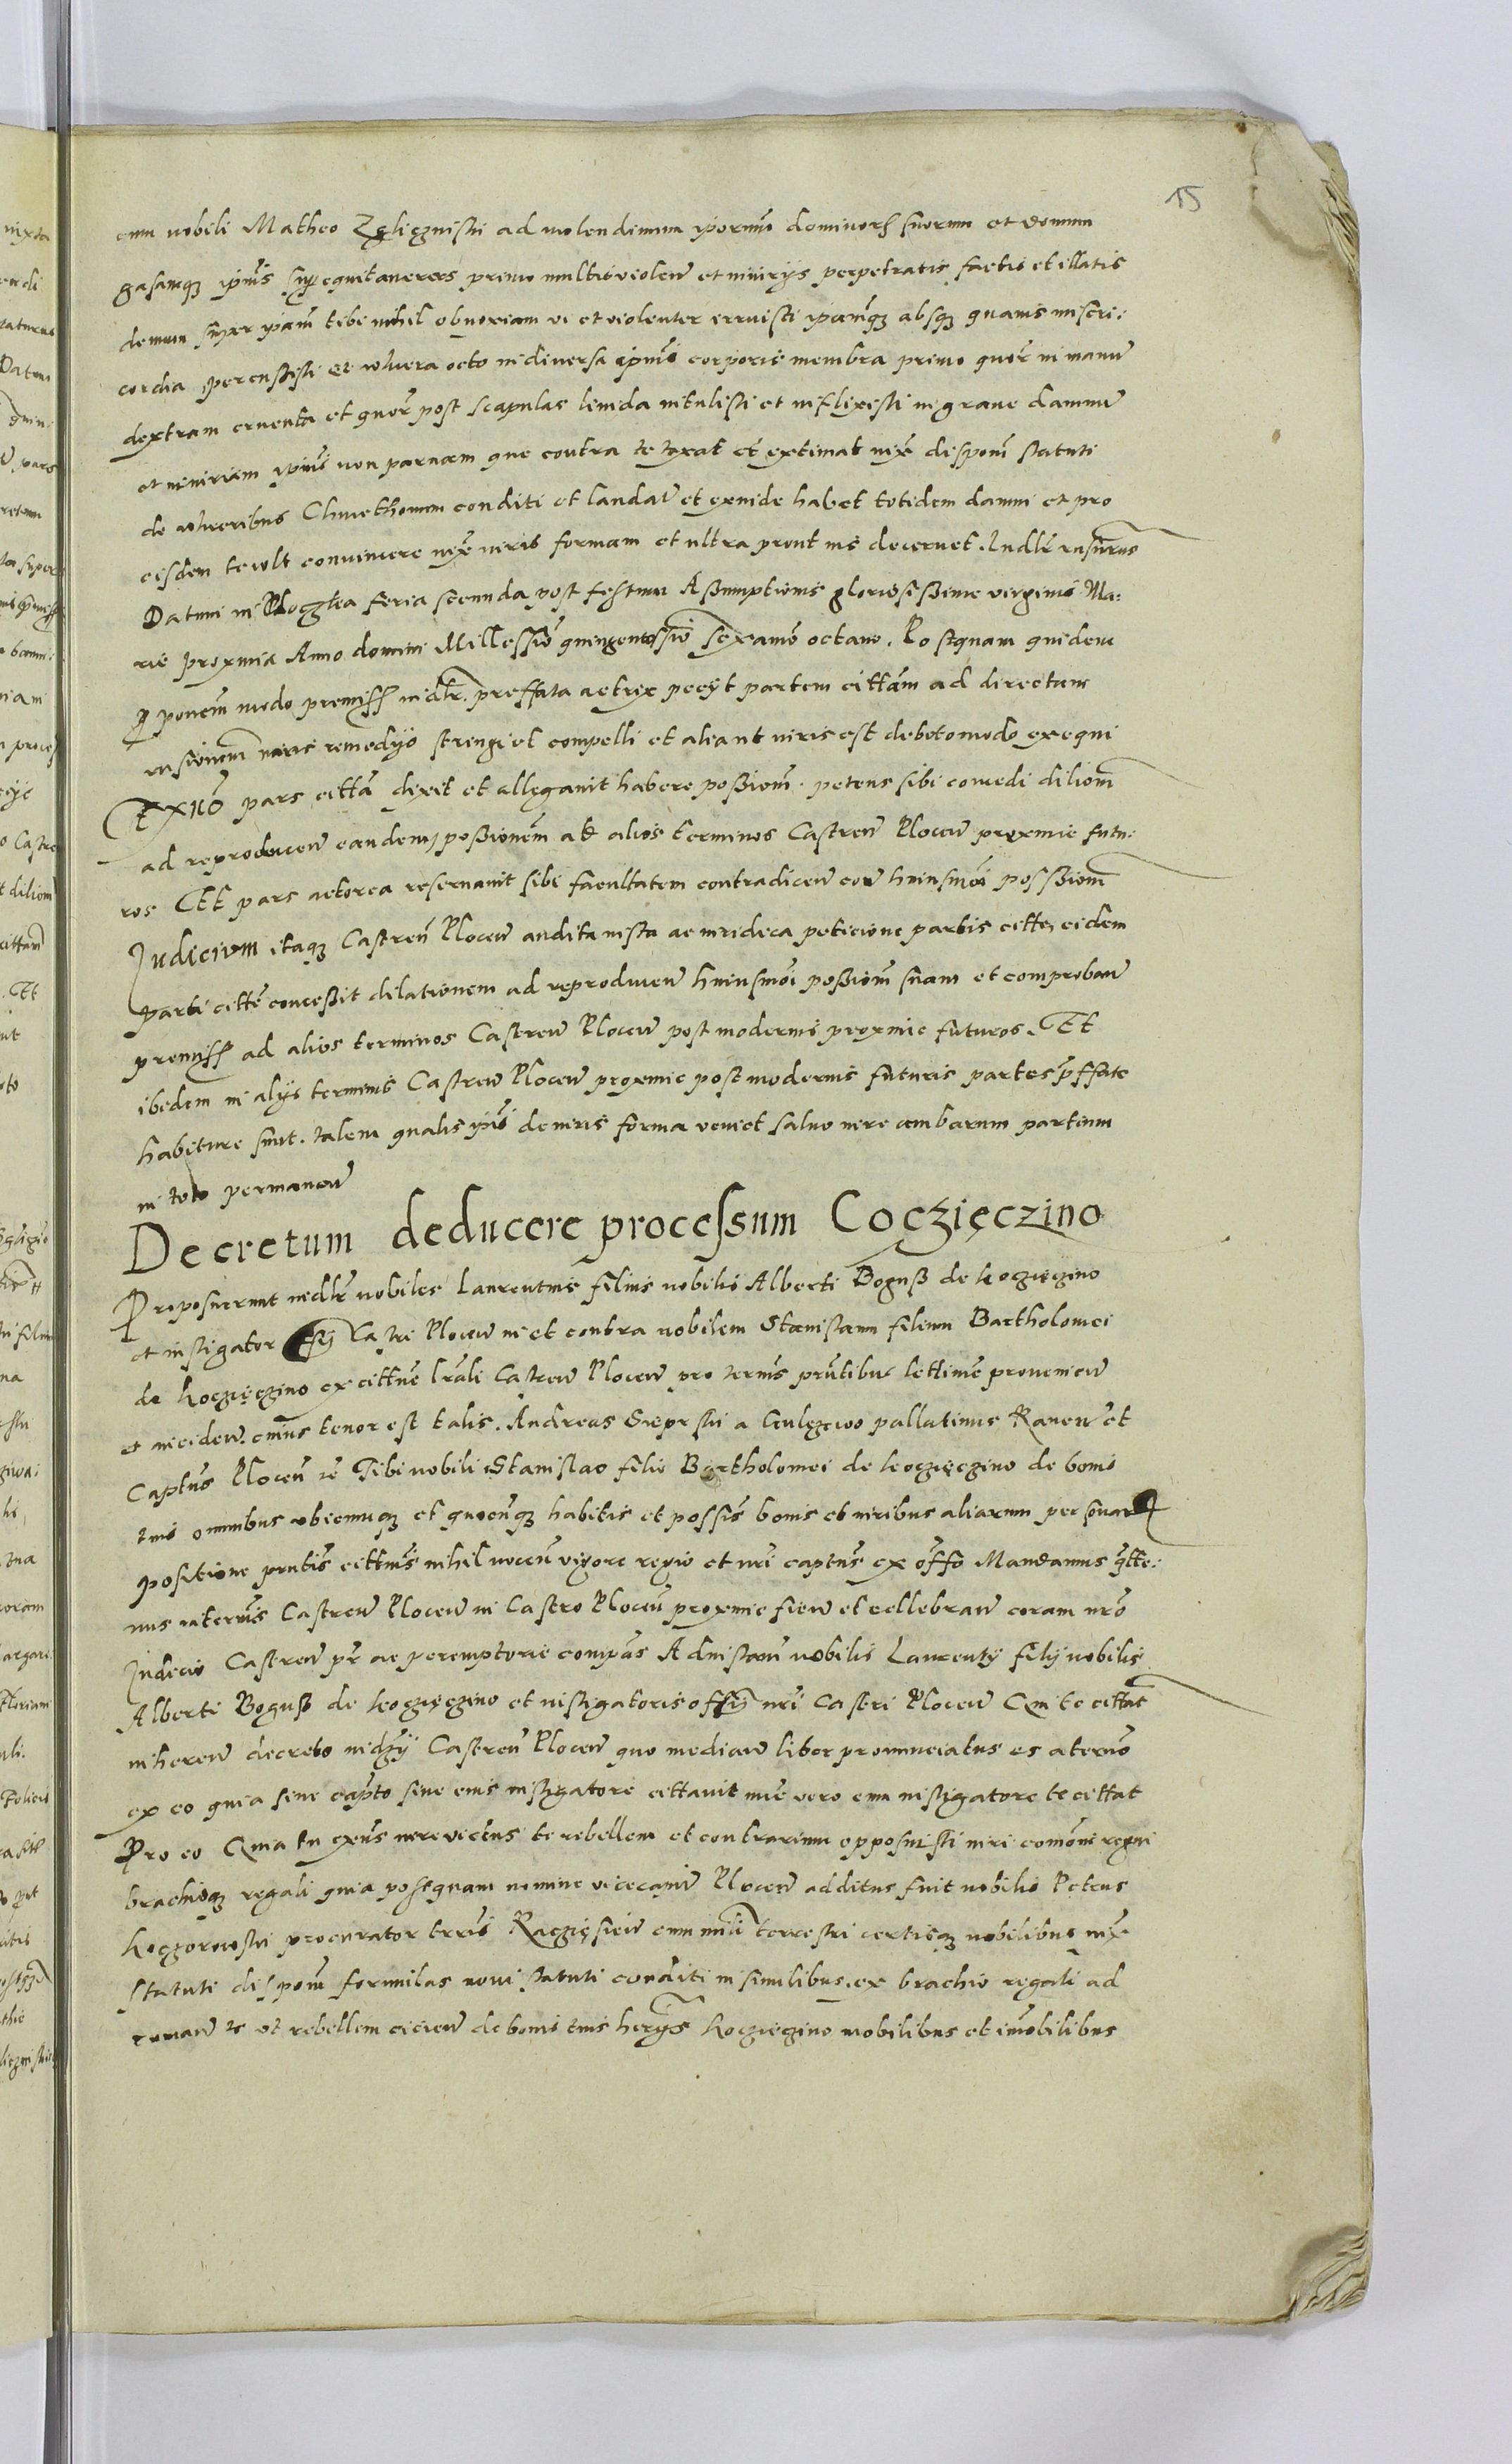 15
cum nobili Matheo Zgliczinski ad molendinum ipormͫ dominorꝝ suorum et domum
gasamqꝫ ipius supequitaueras primo multis violenͥ et iniurijs perpetratis factis et illatis
demum super ipiam tibi nihil obnoxiam vi et violenter irruisti ipiamqꝫ absqꝫ quauis miseri:
cordia percussisti et wlnera octo in diversa ipius corporis membra primo quor in manu
dextram cruenta et quor post scapulas livida intulisti et inflixisti in graue damnū
et iniuriam ipius non parvam que contra te taxat et extimat iux disponem statuti
de wlneribus Chmethonum conditi et laudatū et exinde habet totidem damni et pro
eisdem te wlt convincere iux iuris formam et ultra prout ius decernet. Iudlr rnsurus
Datum in Ploczka feria secunda post festum Assumptionis gloriosissime virginis Ma:
rie proxima Anno domini Millessimo quingentessimo sexamo octauo. Postquam quidem
pponem modo premiss iudlr. preffata actrix pecijt partem cittam ad directam
rnsionem iuris remedijs stringi et compelli et alia ut iuris est debito modo exequi
Exno pars citta dixit et allegauit habere possionem. petens sibi concedi dilionem
ad reproducen eandem possionem ad alios terminos Castren Plocen proxime futu:
ros Et pars actorea reservauit sibi facultatem contradicen con huiusmoi possionem
Judicium itaqꝫ Castren Plocen audita iusta ac iuridica peticione partis citte eidem
parti citte concessit dilationem ad reproducen huiusmoi possionem suam et comproban
premiss ad alios terminos Castren Plocen post modernos proxime futuros. Et
ibidem in alijs terminis Castren Plocen proxime post modernis futuris partes pffate
habiture sunt. talem qualis ipius de iuris forma veniet salvo iure ambarum partium
in toto permanen
Decretum deducere processum Coczięczino
Proposuerunt iudlr nobiles Laurentius filius nobilis Alberti Boguss de Koczięczino
et instigator offij Castri Plocen in et contra nobilem Stanislaum filium Bartholomei
de Koczięczino ex cittne lrali Castren Plocen pro termis pntibus lettime provenien
et inciden. cuius tenor est talis. Andreas Sieprski a Gulczewo pallatinus Raven et
Captus Plocen ie Tibi nobili Stanislao filio Bartholomei de Koczięczino de bonis
tuis omnibus ubicumqꝫ et quocunqꝫ habitis et possis bonis et iuribus aliarum personarꝝ
positione pntis cittnis nihil nocen vigore regio et nri captus ex offo Mandamus qtte:
nus in termis Castren Plocen in Castro Plocen proxime fien et cellebran coram nro
Judicio Castren pr ac peremptorie compas Ad instam nobilis Laurentij filij nobilis
Alberti Boguss de Koczięczino et instigatoris offij nri Castri Plocen Qui te cittat
inheren decreto iudij Castren Plocen quo median liber pronunciatus es a termo
ex eo quia sine capto sine eius instigatore cittauit nuc vero cum instigatore te cittat
Pro eo Quia tu exns iure victus te rebellem et contrarium opposuisti iuri comoni regni
brachioqꝫ regali quia postquam nomine vicecapit Plocen additus fuit nobilis Petrus
Koczorowski procurator terris Raczięsien cum mili terrestri certisqꝫ nobilibus iux
statuti disponem formulas noui statuti conditi in similibus. ex brachio regali ad
te ut rebellem eicien de bonis tuis herijs Koczięczino mobilibus et imobilibus